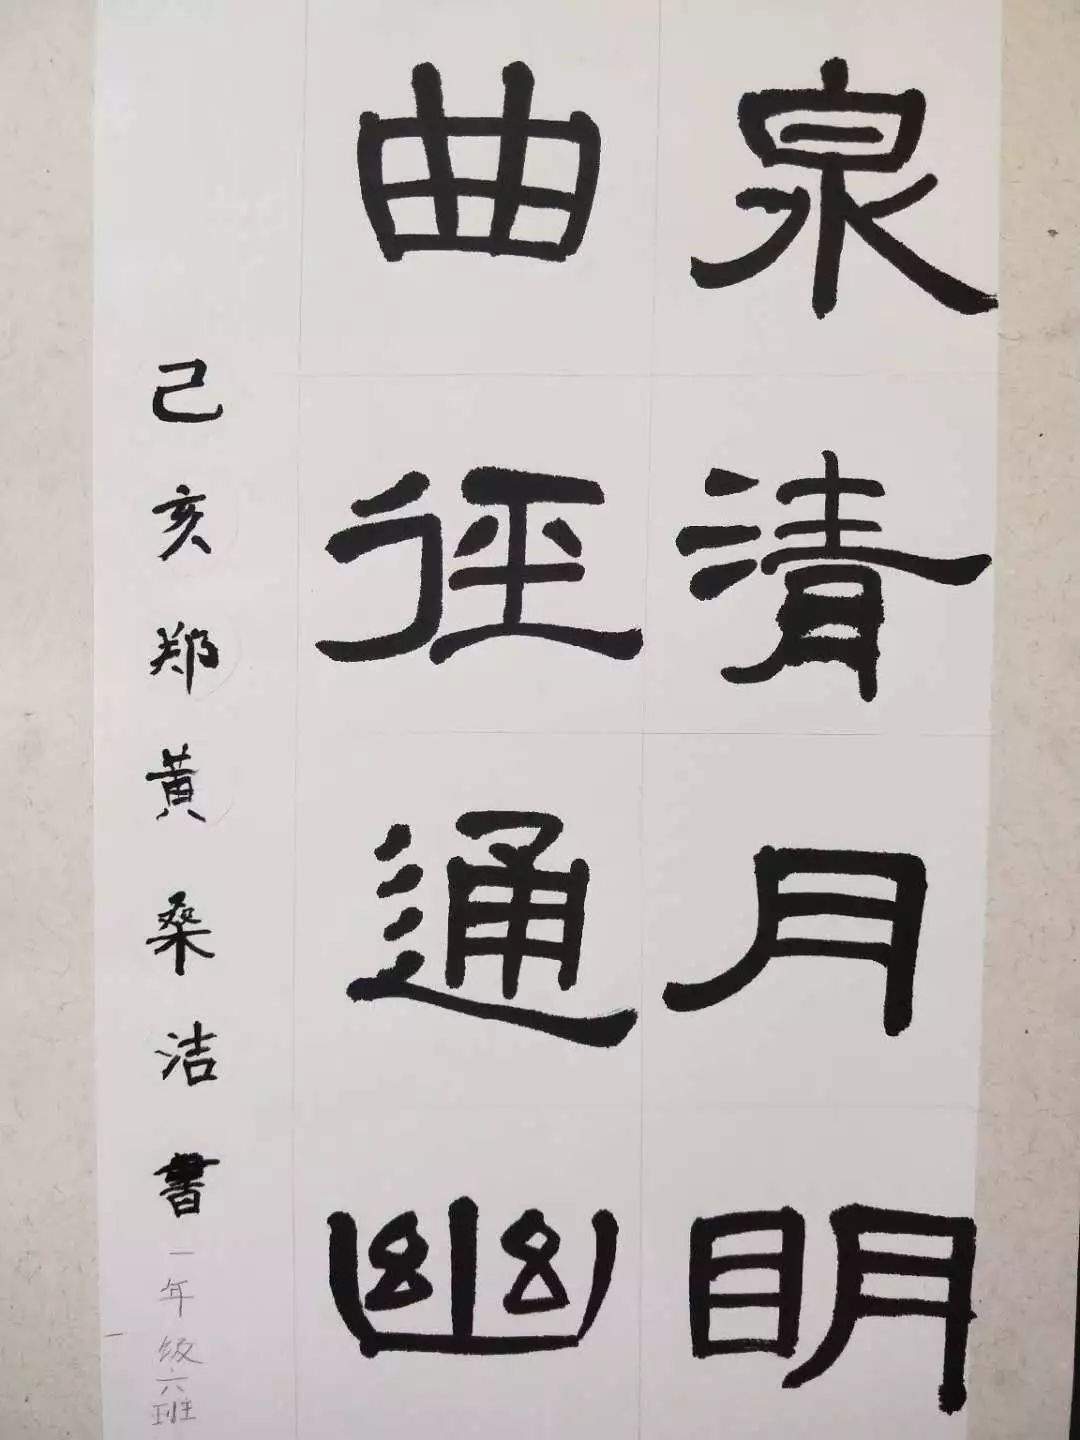 泉清月明
曲径通幽
己亥郑黄桑洁書
一年级六班